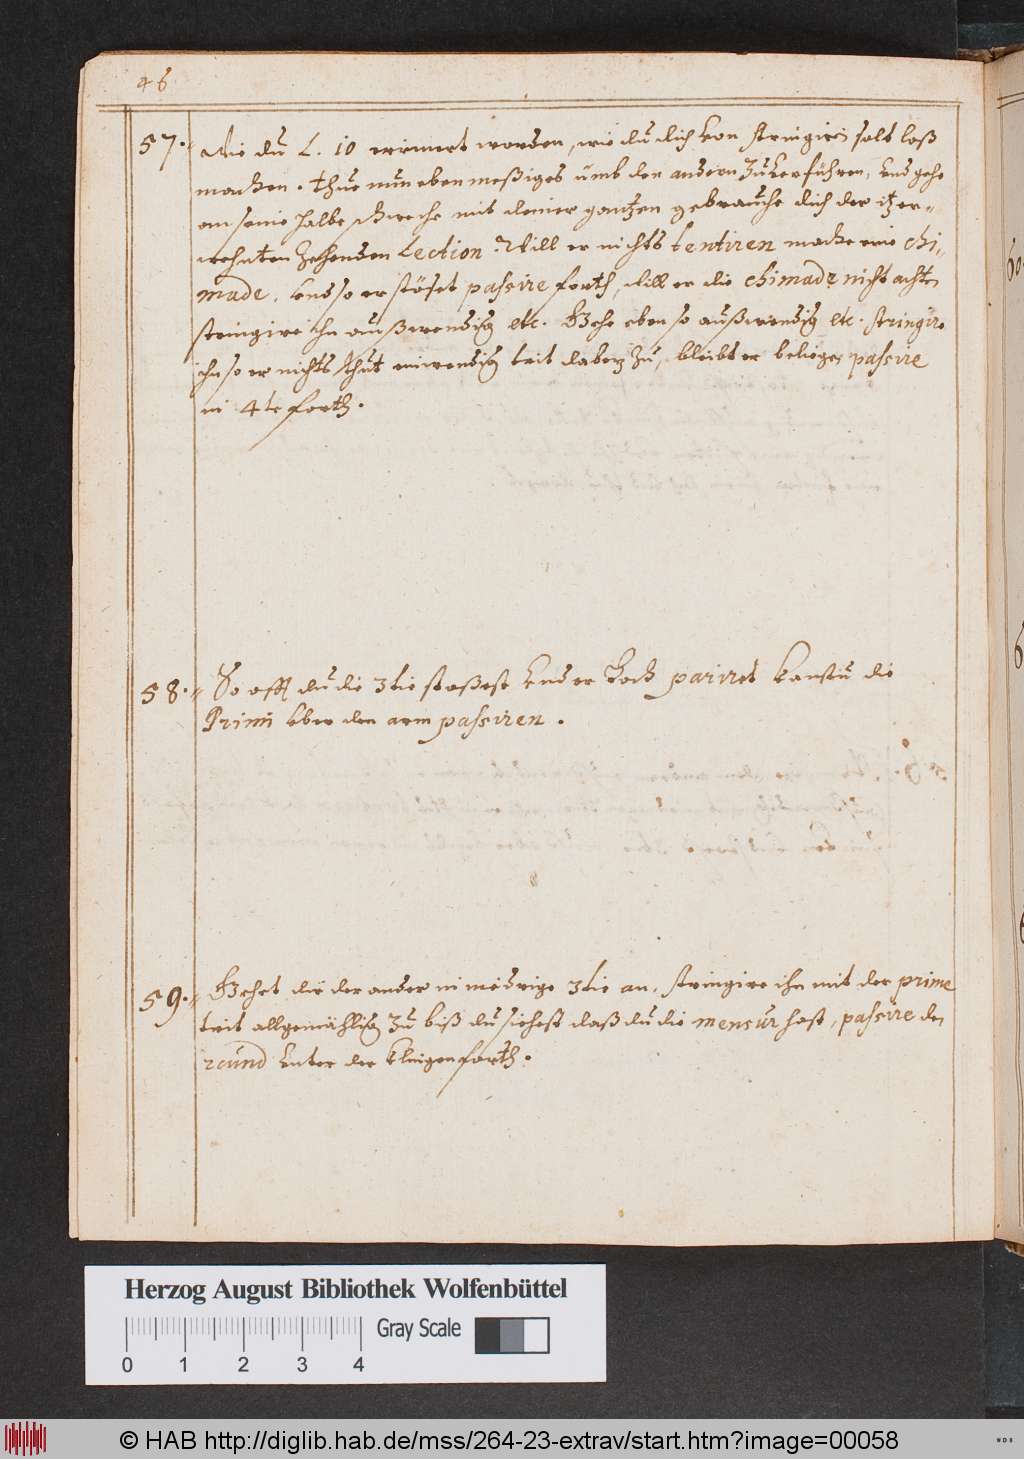 46
57. Wie du L. 10 erinnert worden, wie du dich von stringiren solt loß
machen. thue nun eben meßiges umb den andern zu verführen, und gehe
an seine halbe schweche mit deiner gantzen gebrauche dich der itz er-
wehnten zehenden Lection. Will er nichts tentiren mache eine chi-
made. und so er stöset passire forth, will er die chimade nicht achten
stringire ihn außwendig etc. Gehe eben so außwendig etc. stringire
ihn so er nichts thut inwendig trit dabey zu, bleibt er beliegen passire
in 4te forth.
58. So offt du die 3tie stoßest und er hoch pariret kanstu die
Primi uber den arm passiren.
59. Gehet dir der ander in niedrige 3tie an, stringire ihn mit der prime
trit allgemählig zu biß du siehest daß du die mensur hast, passire de
unter der Klingen forth.
Herzog August Bibliothek Wolfenbüttel
Gray Scale
0 1 2 3 4
© HAB http://diglib.hab.de/mss/264-23-extrav/start.htm?image=00058